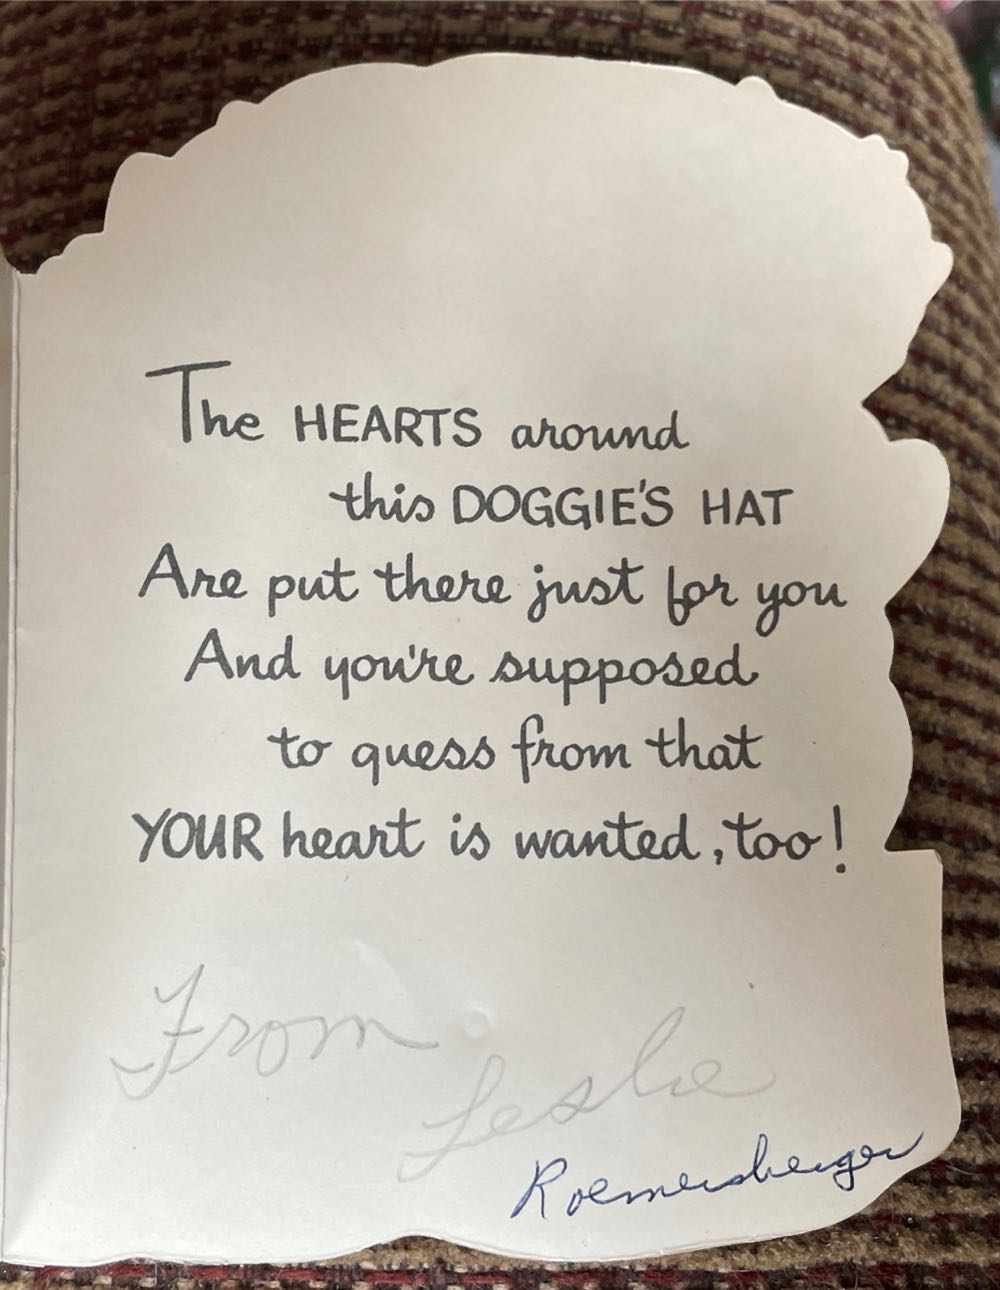 The HEARTS around
this DOGGIE'S HAT
Are put there just for you
And you're supposed
to guess from that
YOUR heart is wanted, too!
From
Leslie
Roemersberger